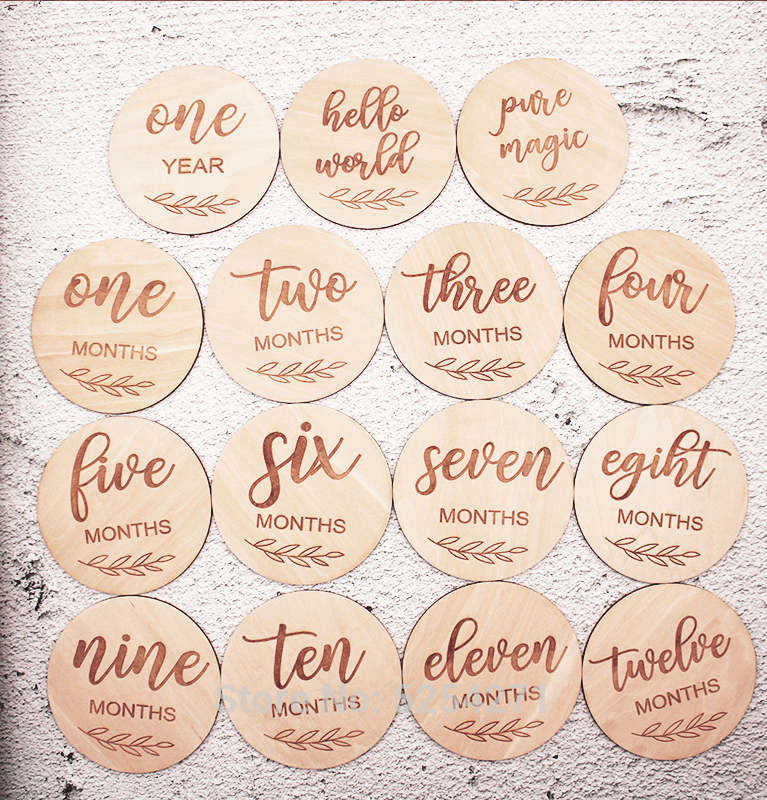 one
YEAR
hello
world
pure
magic
one
MONTHS
two
MONTHS
three
MONTHS
four
MONTHS
five
MONTHS
six
MONTHS
seven
MONTHS
egiht
MONTHS
nine
MONTHS
ten
MONTHS
eleven
MONTHS
twelve
MONTHS
Store No: 5254271